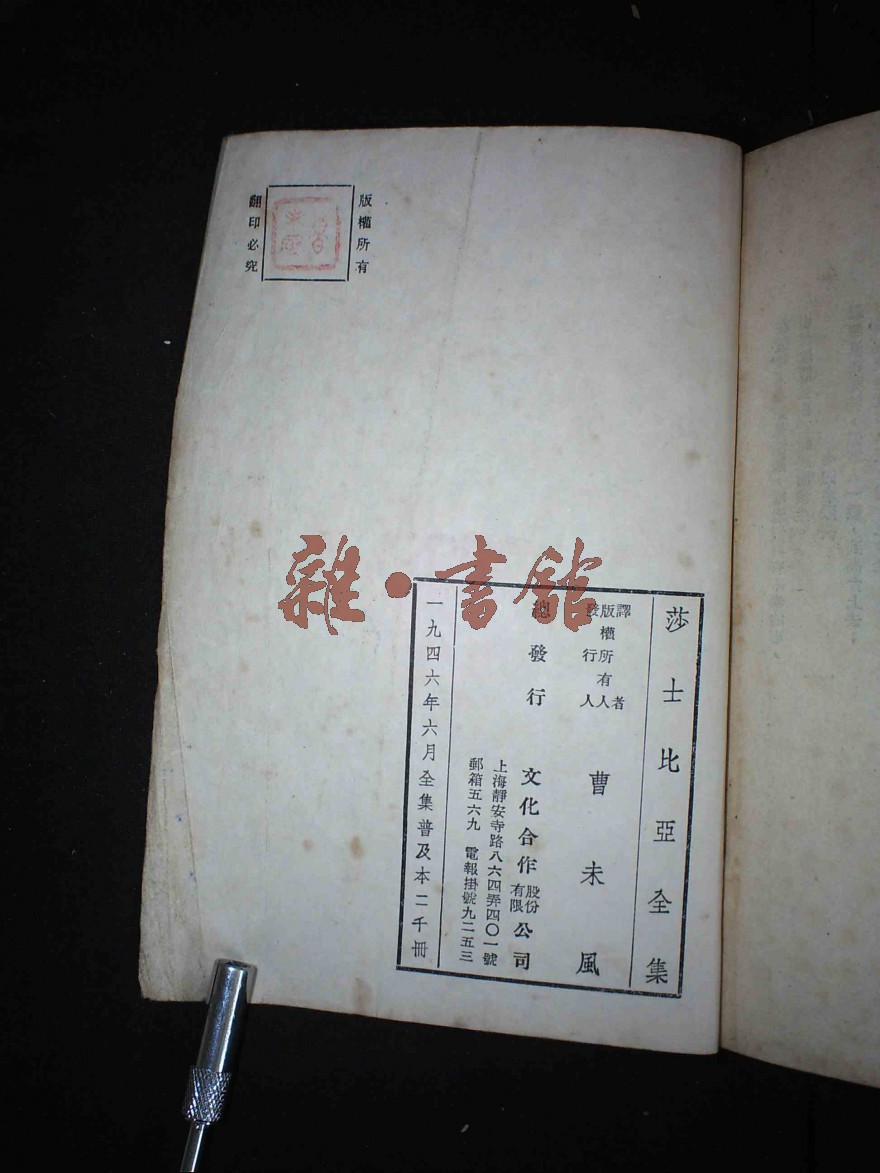 版權所有
翻印必究
莎士比亞全集
譯者
版權所有人
發行人
曹未風
總發行
文化合作股份有限公司
上海靜安寺路八六四弄四〇一號
郵箱五六九 電報掛號九二五三
一九四六年六月全集普及本二千冊
雜·書館